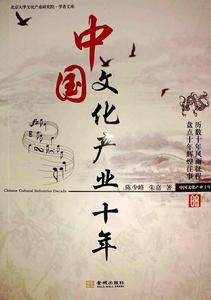 北京大学文化产业研究院·学者文库
中国
文化产业十年
历数十年风雨征程
盘点十年辉煌往事
Chinese Cultural Industries Decade
陈少峰 朱嘉 著
中国文化产业十年
金城出版社
GOLD WALL PRESS